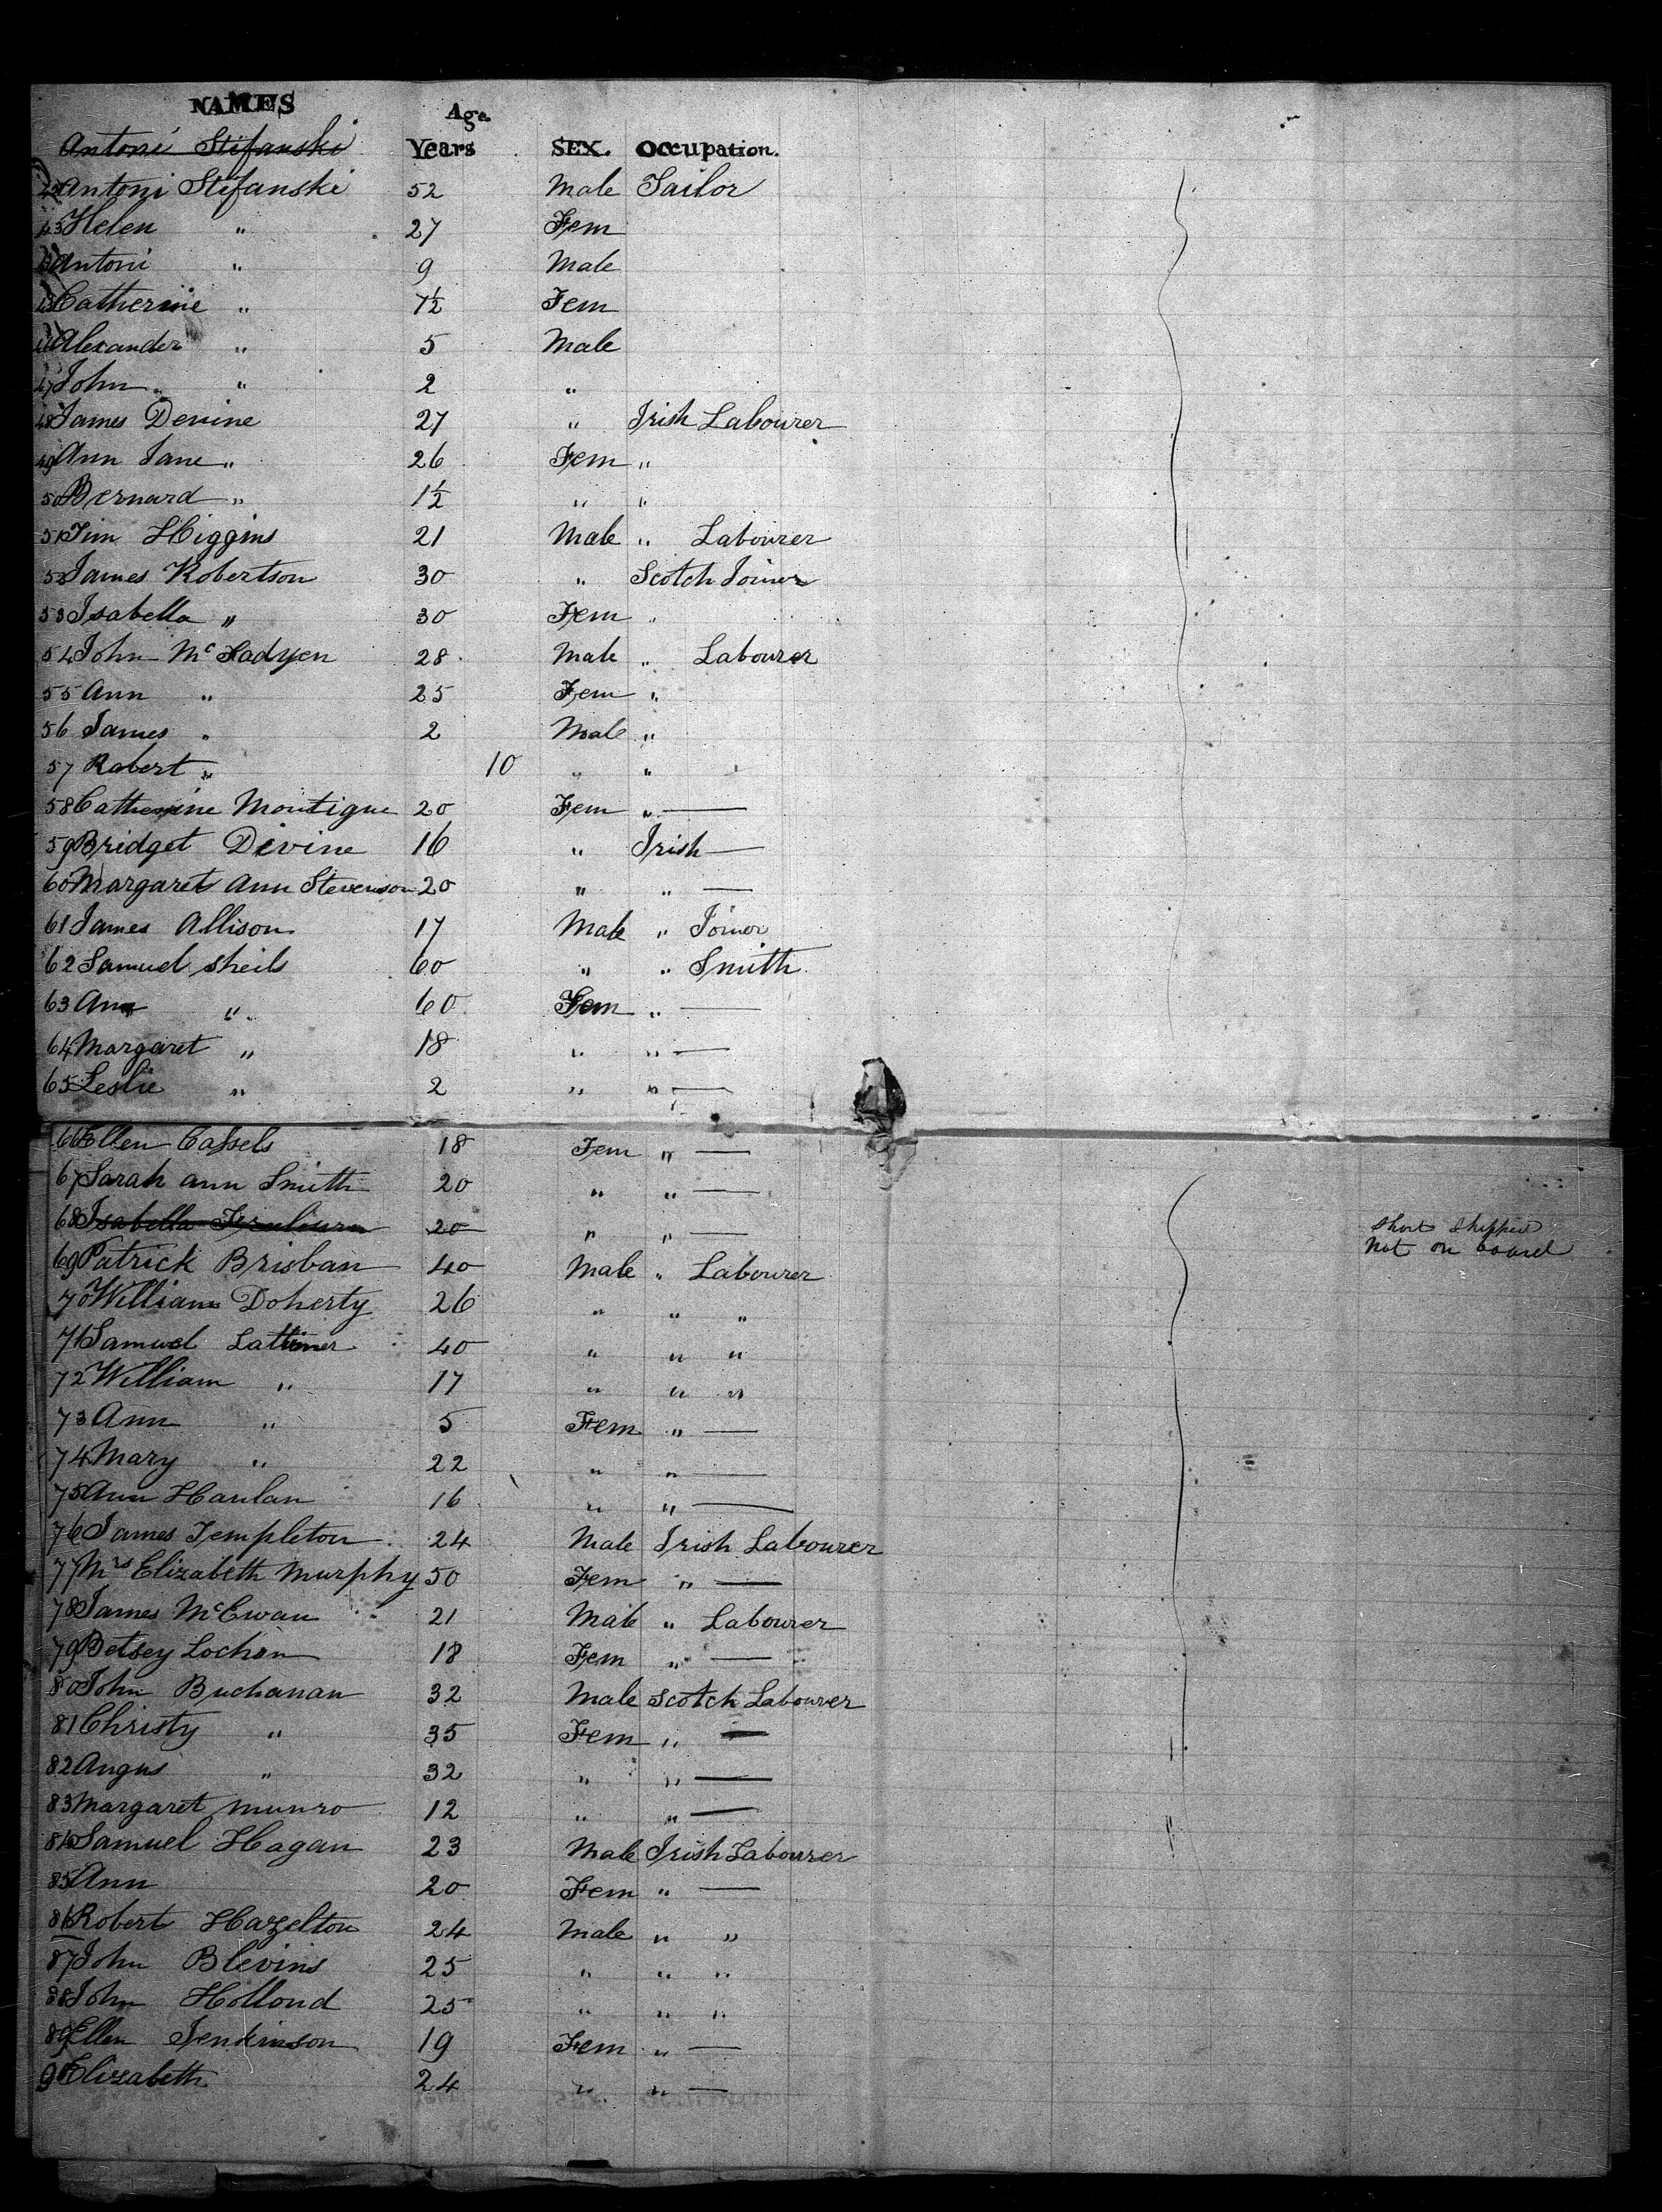 NAMES Age
Antoni Stifanski Years SEX. Occupation.
42 Antoni Stifanski 52 Male Tailor
43 Helen " 27 Fem
44 Antoni " 9 Male
45 Catherine " 7½ Fem
46 Alexander " 5 Male
47 John " 2 "
48 James Devine 27 " Irish Labourer
49 Ann Jane " 26 Fem "
50 Bernard " 1½ " "
51 Jim Higgins 21 Male " Labourer
52 James Robertson 30 " Scotch Joiner
53 Isabella " 30 Fem "
54 John Mc Fadyen 28 Male " Labourer
55 Ann " 25 Fem "
56 James " 2 Male "
57 Robert " 10 " "
58 Catherine Montigue 20 Fem " —
59 Bridget Divine 16 " Irish —
60 Margaret Ann Stevenson 20 " " —
61 James Allison 17 Male " Joiner
62 Samuel Sheils 60 " " Smith
63 Ann " 60 Fem " —
64 Margaret " 18 " " —
65 Leslie " 2 " " —
66 Ellen Cassels 18 Fem " —
67 Sarah ann Smith 20 " " —
68 Isabella 20 " " — Short Shipped
Not on board
69 Patrick Brisban 40 Male " Labourer
70 William Doherty 26 " " "
71 Samuel Lattimer 40 " " "
72 William " 17 " " "
73 Ann " 5 Fem " —
74 Mary " 22 " " —
75 Ann Hanlan 16 " " —
76 James Templeton 24 Male Irish Labourer
77 Mrs Elizabeth Murphy 50 Fem " —
78 James McEwan 21 Male " Labourer
79 Betsey Lochan 18 Fem " —
80 John Buchanan 32 Male Scotch Labourer
81 Christy " 35 Fem " —
82 Angus " 32 " " —
83 Margaret Munro 12 " " —
84 Samuel Hagan 23 Male Irish Labourer
85 Ann 20 Fem " —
86 Robert Hazelton 24 Male " "
87 John Blevins 25 " " "
88 John Hollond 25 " " "
89 Ellen Jenkinson 19 Fem " —
90 Elizabeth 24 " " —